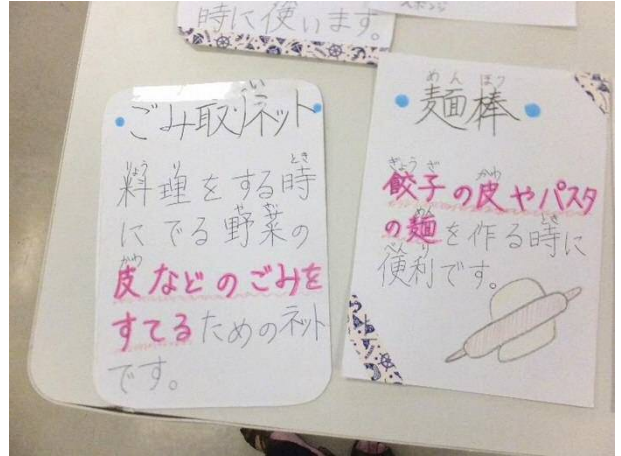 時に使います。
ごみ取りネット
料理をする時
にでる野菜の
皮などのごみを
すてるためのネット
です。
麺棒
餃子の皮やパスタ
の麺を作る時に
便利です。